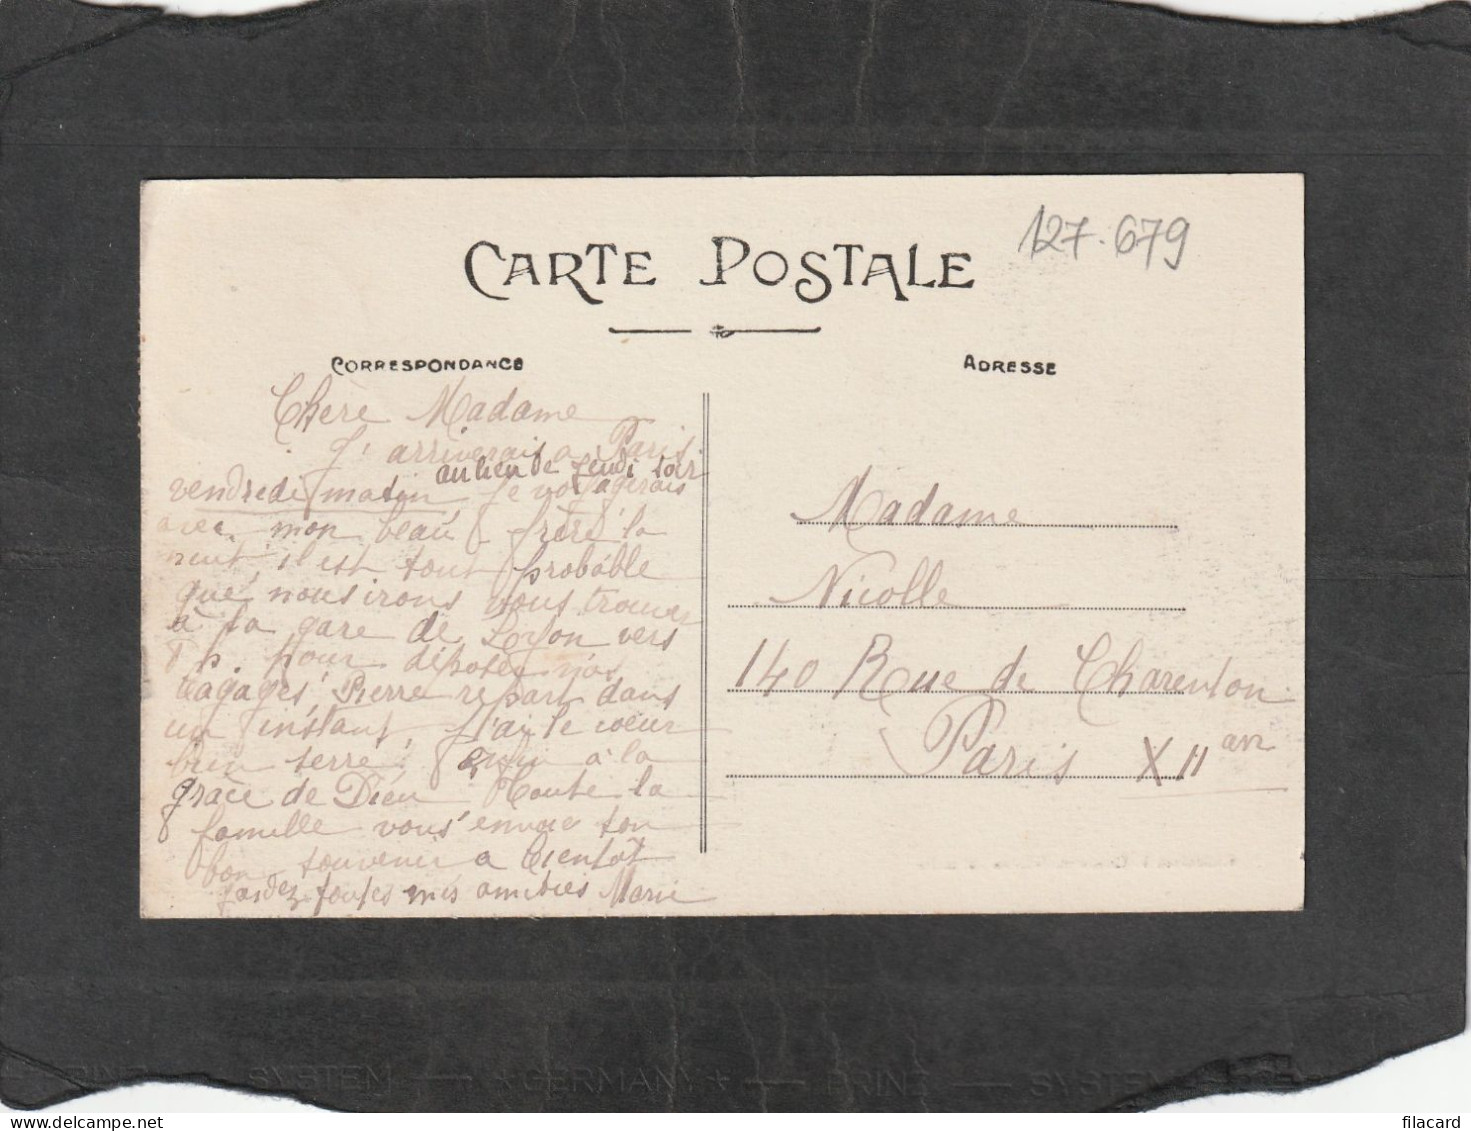 127.679
CARTE POSTALE
CORRESPONDANCE
ADRESSE
Chère Madame
J'arriverais a Paris
au lieu de jeudi soir
vendredi matin, je voyagerais
avec mon beau frère la
nuit, il est tout probable
que nous irons vous trouver
à la gare de Lyon vers
8 h. pour déposer nos
bagages, Pierre repart dans
un instant, j'ai le coeur
bien serré, enfin à la
grace de Dieu Toute la
famille vous envoie son
bon souvenir a bientôt
toutes mes amitiés Marie
Madame
Nicolle
140 Rue de Charenton
Paris XII arr
PRINZ SYSTEM *GERMANY* PRINZ SYSTEM
filacard
delcampe.net